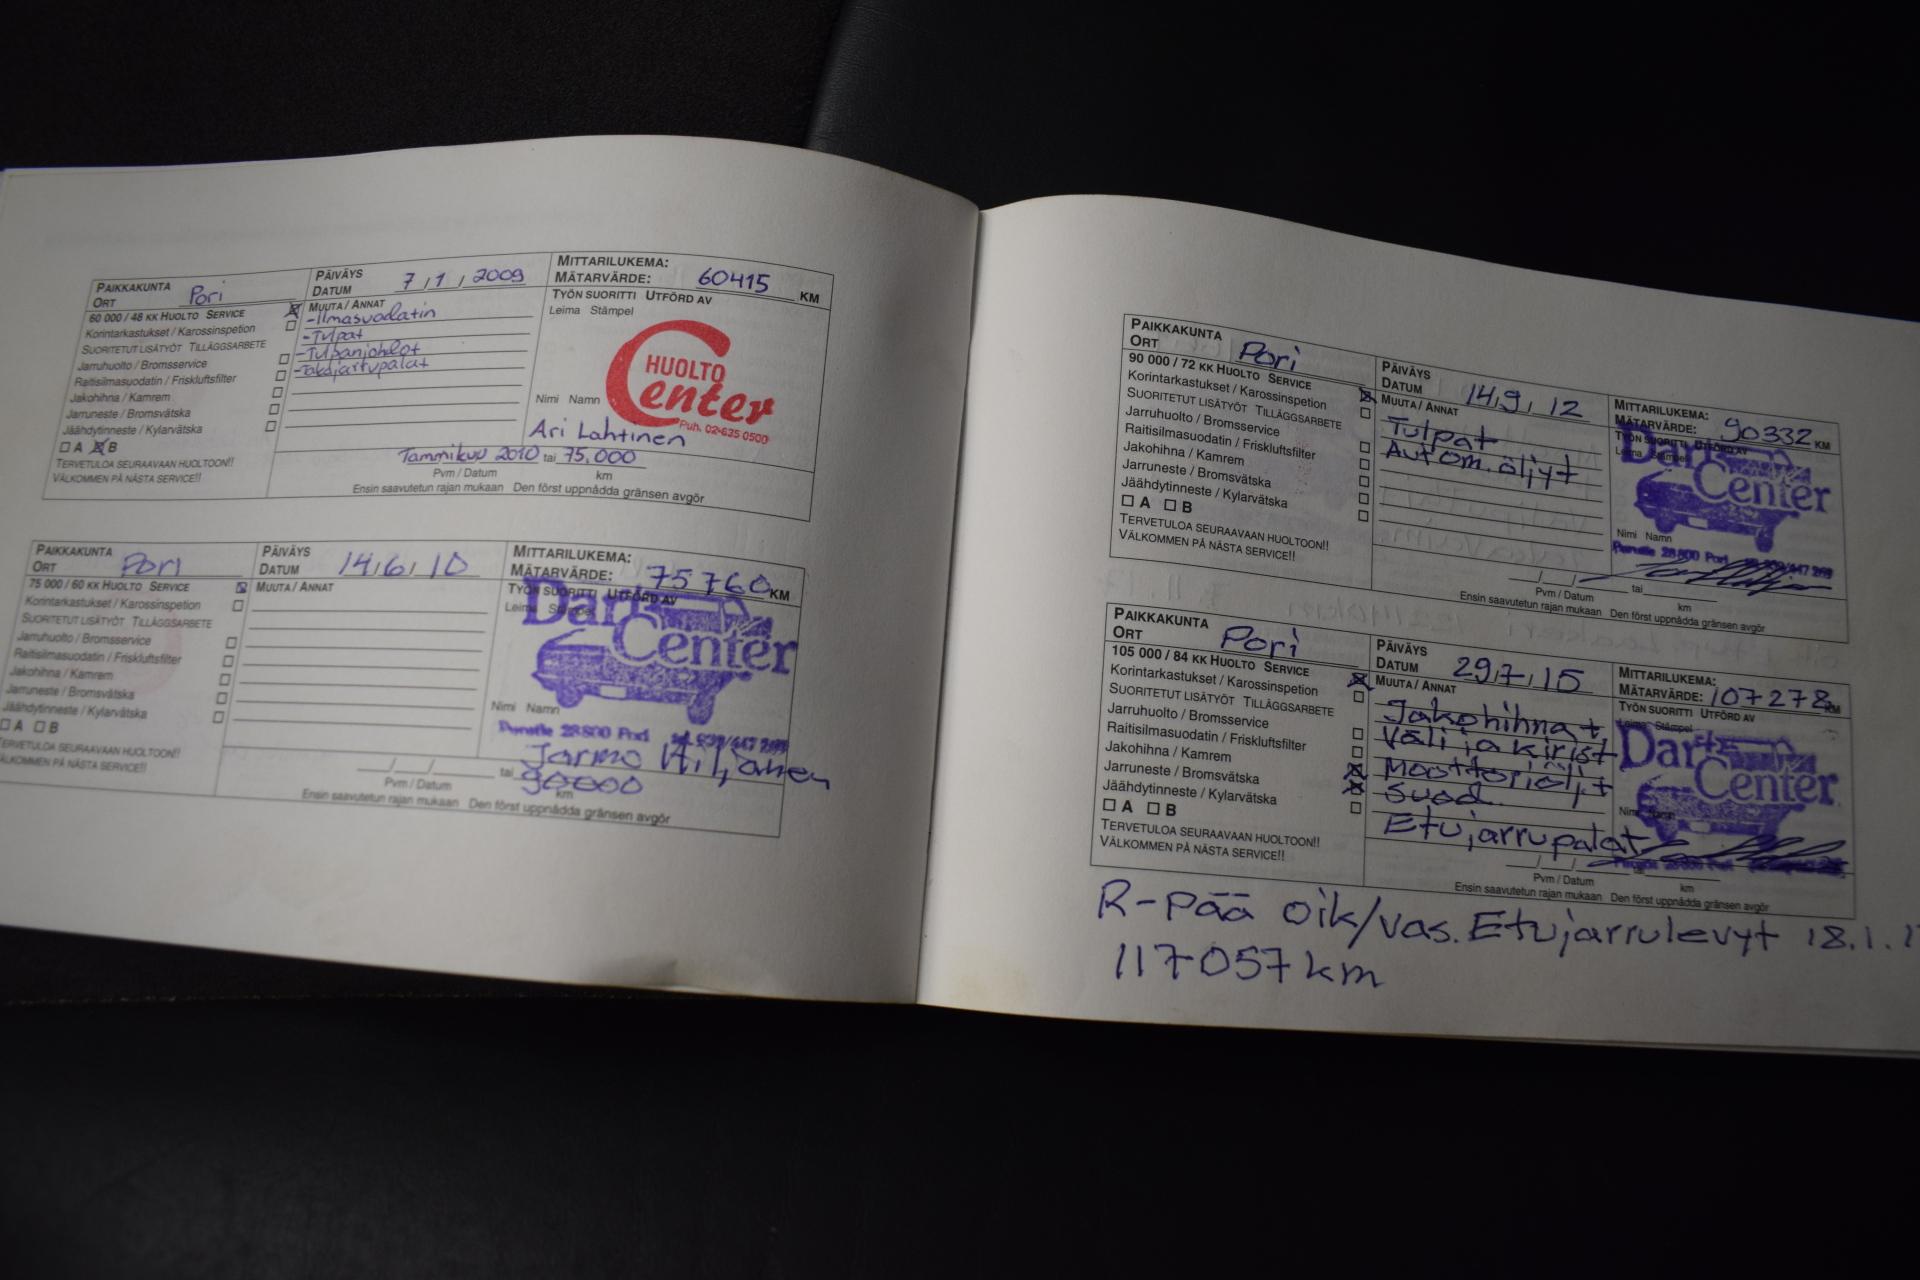 PAIKKAKUNTA
ORT Pori
PÄIVÄYS
DATUM 7/1/2009
MITTARILUKEMA:
MÄTARVÄRDE: 60415 KM
60 000 / 48 KK HUOLTO SERVICE
Korintarkastukset / Karossinspetion
SUORITETUT LISÄTYÖT TILLÄGGSARBETE
Jarruhuolto / Bromsservice
Raitisilmasuodatin / Friskluftsfilter
Jakohihna / Kamrem
Jarruneste / Bromsvätska
Jäähdytinneste / Kylarvätska
A B
TERVETULOA SEURAAVAAN HUOLTOON!!
VÄLKOMMEN PÅ NÄSTA SERVICE!!
MUUTA / ANNAT
-Ilmasuodatin
-Tulpat
-Tulpanjohdot
TYÖN SUORITTI UTFÖRD AV
Leima Stämpel
HUOLTO
Center
Puh. 02-635 0500
Nimi Namn
Ari Lahtinen
Tammikuu 2010 tai 75.000
Pvm / Datum km
Ensin saavutetun rajan mukaan Den först uppnådda gränsen avgör
PAIKKAKUNTA
ORT Pori
PÄIVÄYS
DATUM 14/6/10
MITTARILUKEMA:
MÄTARVÄRDE: 75760 KM
75 000 / 60 KK HUOLTO SERVICE
Korintarkastukset / Karossinspetion
SUORITETUT LISÄTYÖT TILLÄGGSARBETE
Jarruhuolto / Bromsservice
Raitisilmasuodatin / Friskluftsfilter
Jakohihna / Kamrem
Jarruneste / Bromsvätska
Jäähdytinneste / Kylarvätska
A B
TERVETULOA SEURAAVAAN HUOLTOON!!
VÄLKOMMEN PÅ NÄSTA SERVICE!!
MUUTA / ANNAT
TYÖN SUORITTI UTFÖRD AV
Leima Stämpel
Center
Nimi Namn
28800 Pori
Jarmo
tai 90000
Pvm / Datum km
Ensin saavutetun rajan mukaan Den först uppnådda gränsen avgör
PAIKKAKUNTA
ORT Pori
PÄIVÄYS
DATUM 14/9/12
MITTARILUKEMA:
MÄTARVÄRDE: 90332 KM
90 000 / 72 KK HUOLTO SERVICE
Korintarkastukset / Karossinspetion
SUORITETUT LISÄTYÖT TILLÄGGSARBETE
Jarruhuolto / Bromsservice
Raitisilmasuodatin / Friskluftsfilter
Jakohihna / Kamrem
Jarruneste / Bromsvätska
Jäähdytinneste / Kylarvätska
A B
TERVETULOA SEURAAVAAN HUOLTOON!!
VÄLKOMMEN PÅ NÄSTA SERVICE!!
MUUTA / ANNAT
Tulpat
Autom.öljyt
TYÖN SUORITTI UTFÖRD AV
Leima Stämpel
Center
Nimi Namn
28800 Pori
tai
Pvm / Datum km
Ensin saavutetun rajan mukaan Den först uppnådda gränsen avgör
PAIKKAKUNTA
ORT Pori
PÄIVÄYS
DATUM 29/7/15
MITTARILUKEMA:
MÄTARVÄRDE: 107278 KM
105 000 / 84 KK HUOLTO SERVICE
Korintarkastukset / Karossinspetion
SUORITETUT LISÄTYÖT TILLÄGGSARBETE
Jarruhuolto / Bromsservice
Raitisilmasuodatin / Friskluftsfilter
Jakohihna / Kamrem
Jarruneste / Bromsvätska
Jäähdytinneste / Kylarvätska
A B
TERVETULOA SEURAAVAAN HUOLTOON!!
VÄLKOMMEN PÅ NÄSTA SERVICE!!
MUUTA / ANNAT
Jakohihna t,
väli ja kirist
Moottoriöljyt
suod.
Etujarrupalat
TYÖN SUORITTI UTFÖRD AV
Leima Stämpel
Center
Nimi Namn
28800 Pori
tai
Pvm / Datum km
Ensin saavutetun rajan mukaan Den först uppnådda gränsen avgör
R-Pää oik/vas. Etujarrulevyt 18.1.
117057 km